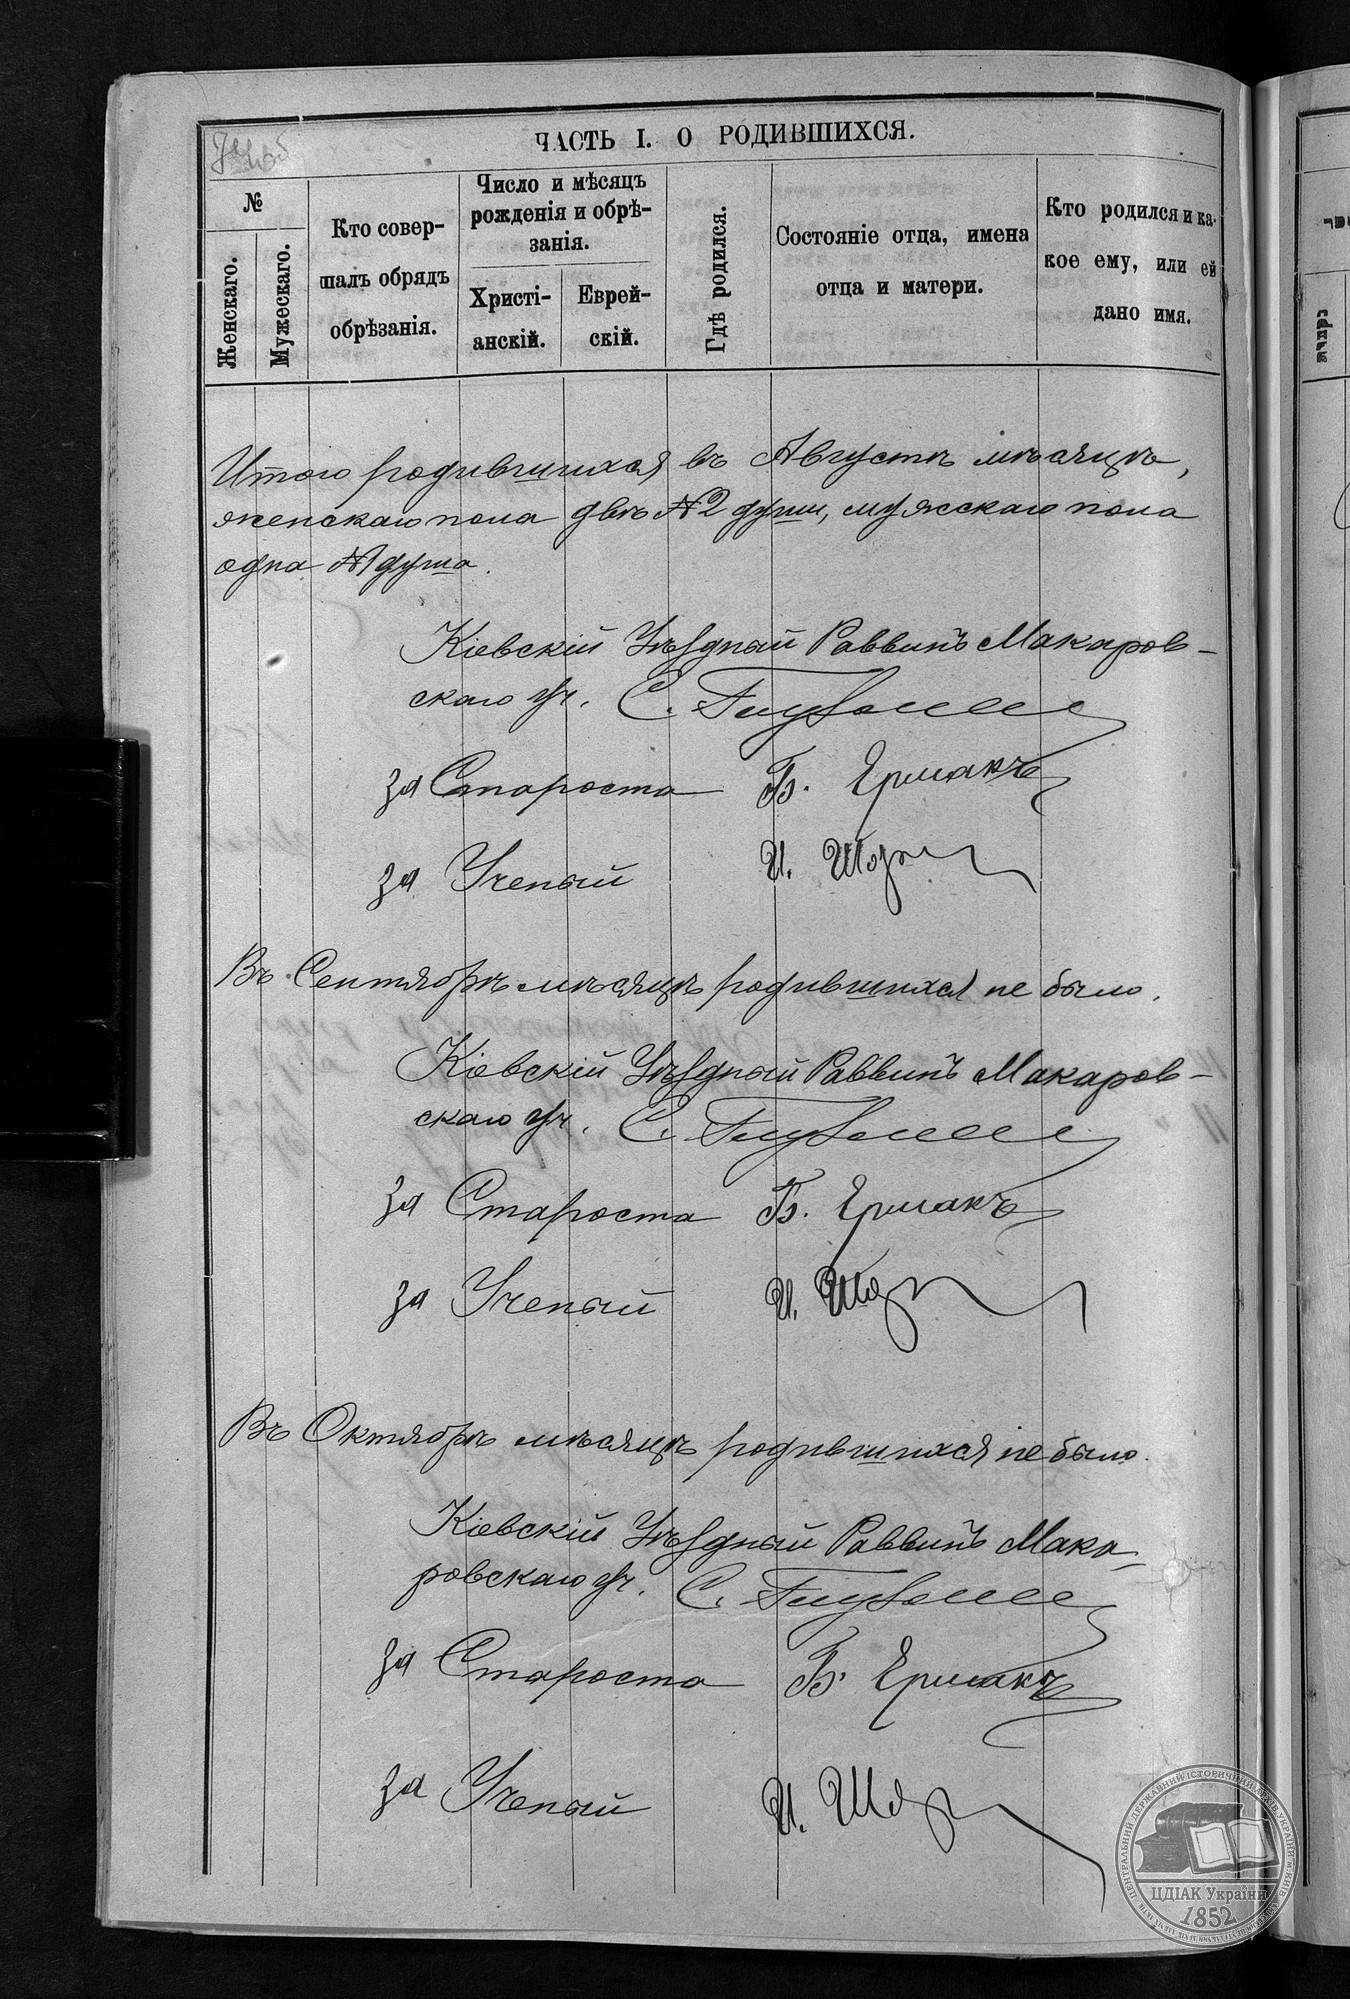 ЧАСТЬ I. О РОДИВШИХСЯ.
№
Женскаго.
Мужескаго.
Кто совер-
шалъ обрядъ
обрѣзанія.
Число и мѣсяцъ
рожденія и обрѣ-
занія.
Христі-
анскій.
Еврей-
скій.
Гдѣ родился.
Состояніе отца, имена
отца и матери.
Кто родился и ка-
кое ему, или ей
дано имя.
Итого родившихся въ Августѣ мѣсяцѣ,
женскаго пола двѣ №2 души, мужскаго пола
одна №1 душа.
Кіевскій Уѣздный Раввинъ Макаров-
скаго уч. С.
за Староста Б. Ермакъ
за Ученый И.
Въ Сентябрѣ мѣсяцѣ родившихся не было.
Кіевскій Уѣздный Раввинъ Макаров-
скаго уч. С.
за Староста Б. Ермакъ
за Ученый И.
Въ Октябрѣ мѣсяцѣ родившихся не было.
Кіевскій Уѣздный Раввинъ Мака-
ровскаго уч. С.
за Староста Б. Ермакъ
за Ученый И.
ЦЕНТРАЛЬНИЙ ДЕРЖАВНИЙ ІСТОРИЧНИЙ АРХІВ УКРАЇНИ М. КИЇВ
ЦДІАК України
1852